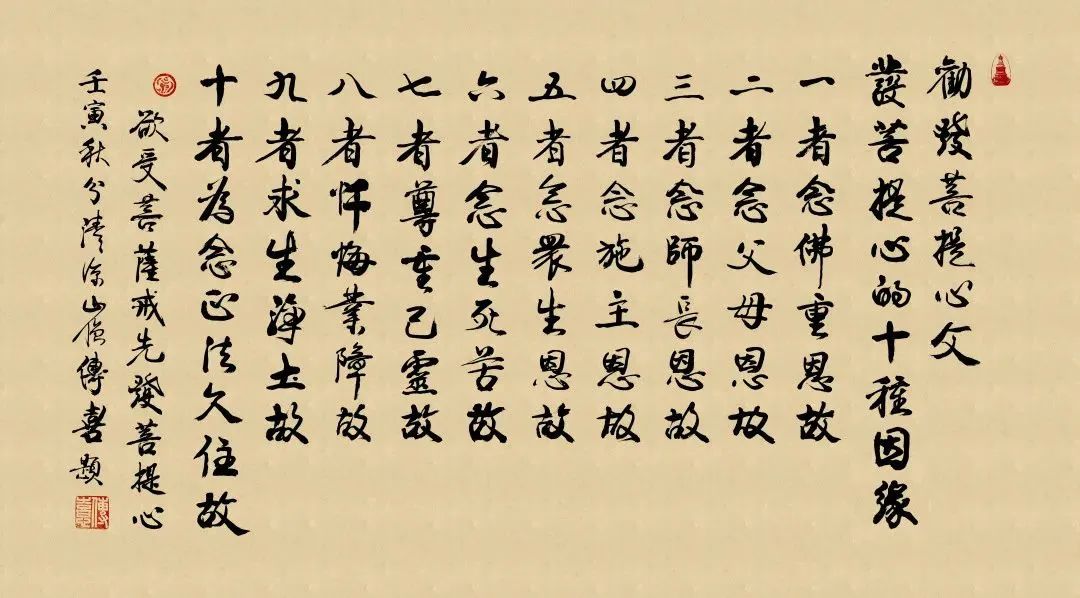 勸發菩提心文
發菩提心的十種因緣
一者念佛重恩故
二者念父母恩故
三者念師長恩故
四者念施主恩故
五者念眾生恩故
六者念生死苦故
七者尊重己靈故
八者懺悔業障故
九者求生淨土故
十者為念正法久住故
欲受菩薩戒先發菩提心
壬寅秋分清涼山僧傳喜題
傳喜